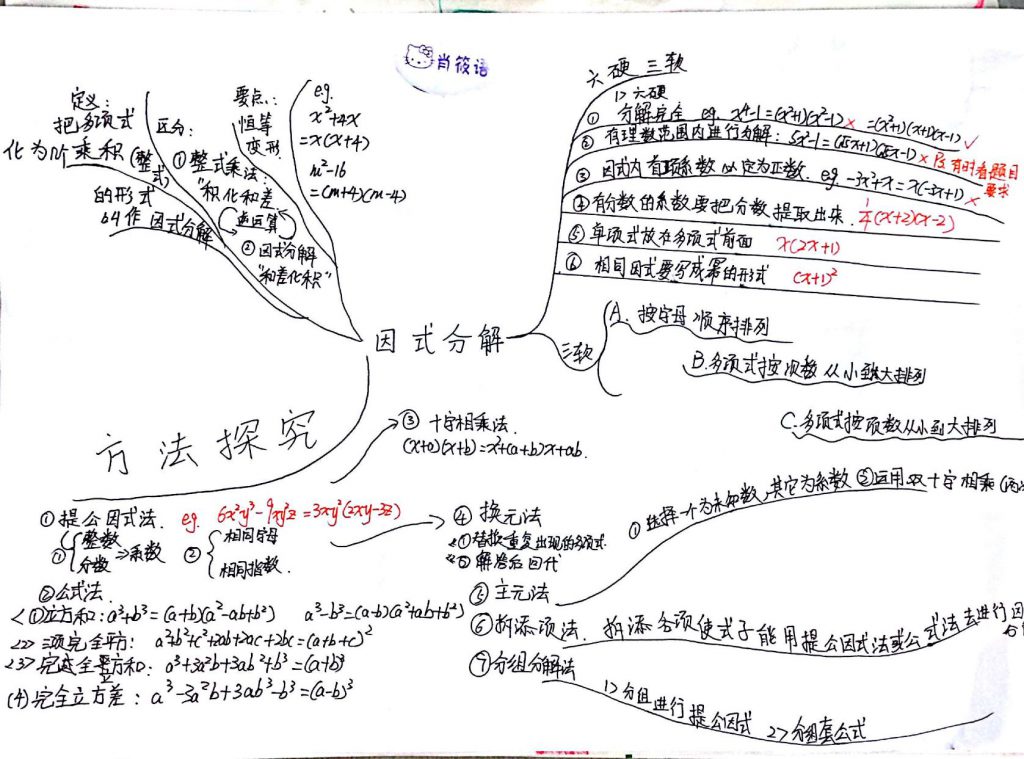 肖筱语
因式分解
定义:
把多项式
化为几个乘积
(整式)
的形式
叫作因式分解
区分:
①整式乘法:
"积化和差"
逆运算
②因式分解
"和差化积"
要点:
恒等
变形
eg.
x²+4x
=x(x+4)
m²-16
=(m+4)(m-4)
六硬三软
1> 六硬
① 分解完全 eg. x⁴-1=(x²+1)(x²-1)× =(x²+1)(x+1)(x-1)√
② 有理数范围内进行分解: 5x²-1=(√5x+1)(√5x-1)× Ps有时看题目
要求
③ 因式内首项系数必定为正数. eg. -3x²+x=x(-3x+1)×
④ 有分数的系数要把分数提取出来. 1/4(x+2)(x-2)
⑤ 单项式放在多项式前面 x(2x+1)
⑥ 相同因式要写成幂的形式 (x+1)²
三软
A. 按字母顺序排列
B.多项式按次数从小到大排列
C.多项式按项数从小到大排列
方法探究
①提公因式法. eg. 6x²y³-9xy²z=3xy²(2xy-3z)
① 整数
分数 ⇒系数
② 相同字母
相同指数.
②公式法.
<①立方和:a³+b³=(a+b)(a²-ab+b²) a³-b³=(a-b)(a²+ab+b²)
<2>三项完全平方: a²+b²+c²+2ab+2ac+2bc=(a+b+c)²
<3>完全立方和: a³+3a²b+3ab²+b³=(a+b)³
(4)完全立方差: a³-3a²b+3ab³-b³=(a-b)³
③ 十字相乘法.
(x+a)(x+b)=x²+(a+b)x+ab.
④ 换元法
①替换重复出现的多项式.
②解答后回代
⑤主元法
①选择一个为未知数,其它为系数 ②运用双十字相乘
⑥拆添项法. 拆添各项使式子能用提公因式法或公式法去进行因
⑦分组分解法
1>分组进行提公因式 2>分组套公式